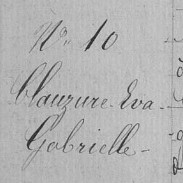 No 10
Clauzure Eva
Gabrielle